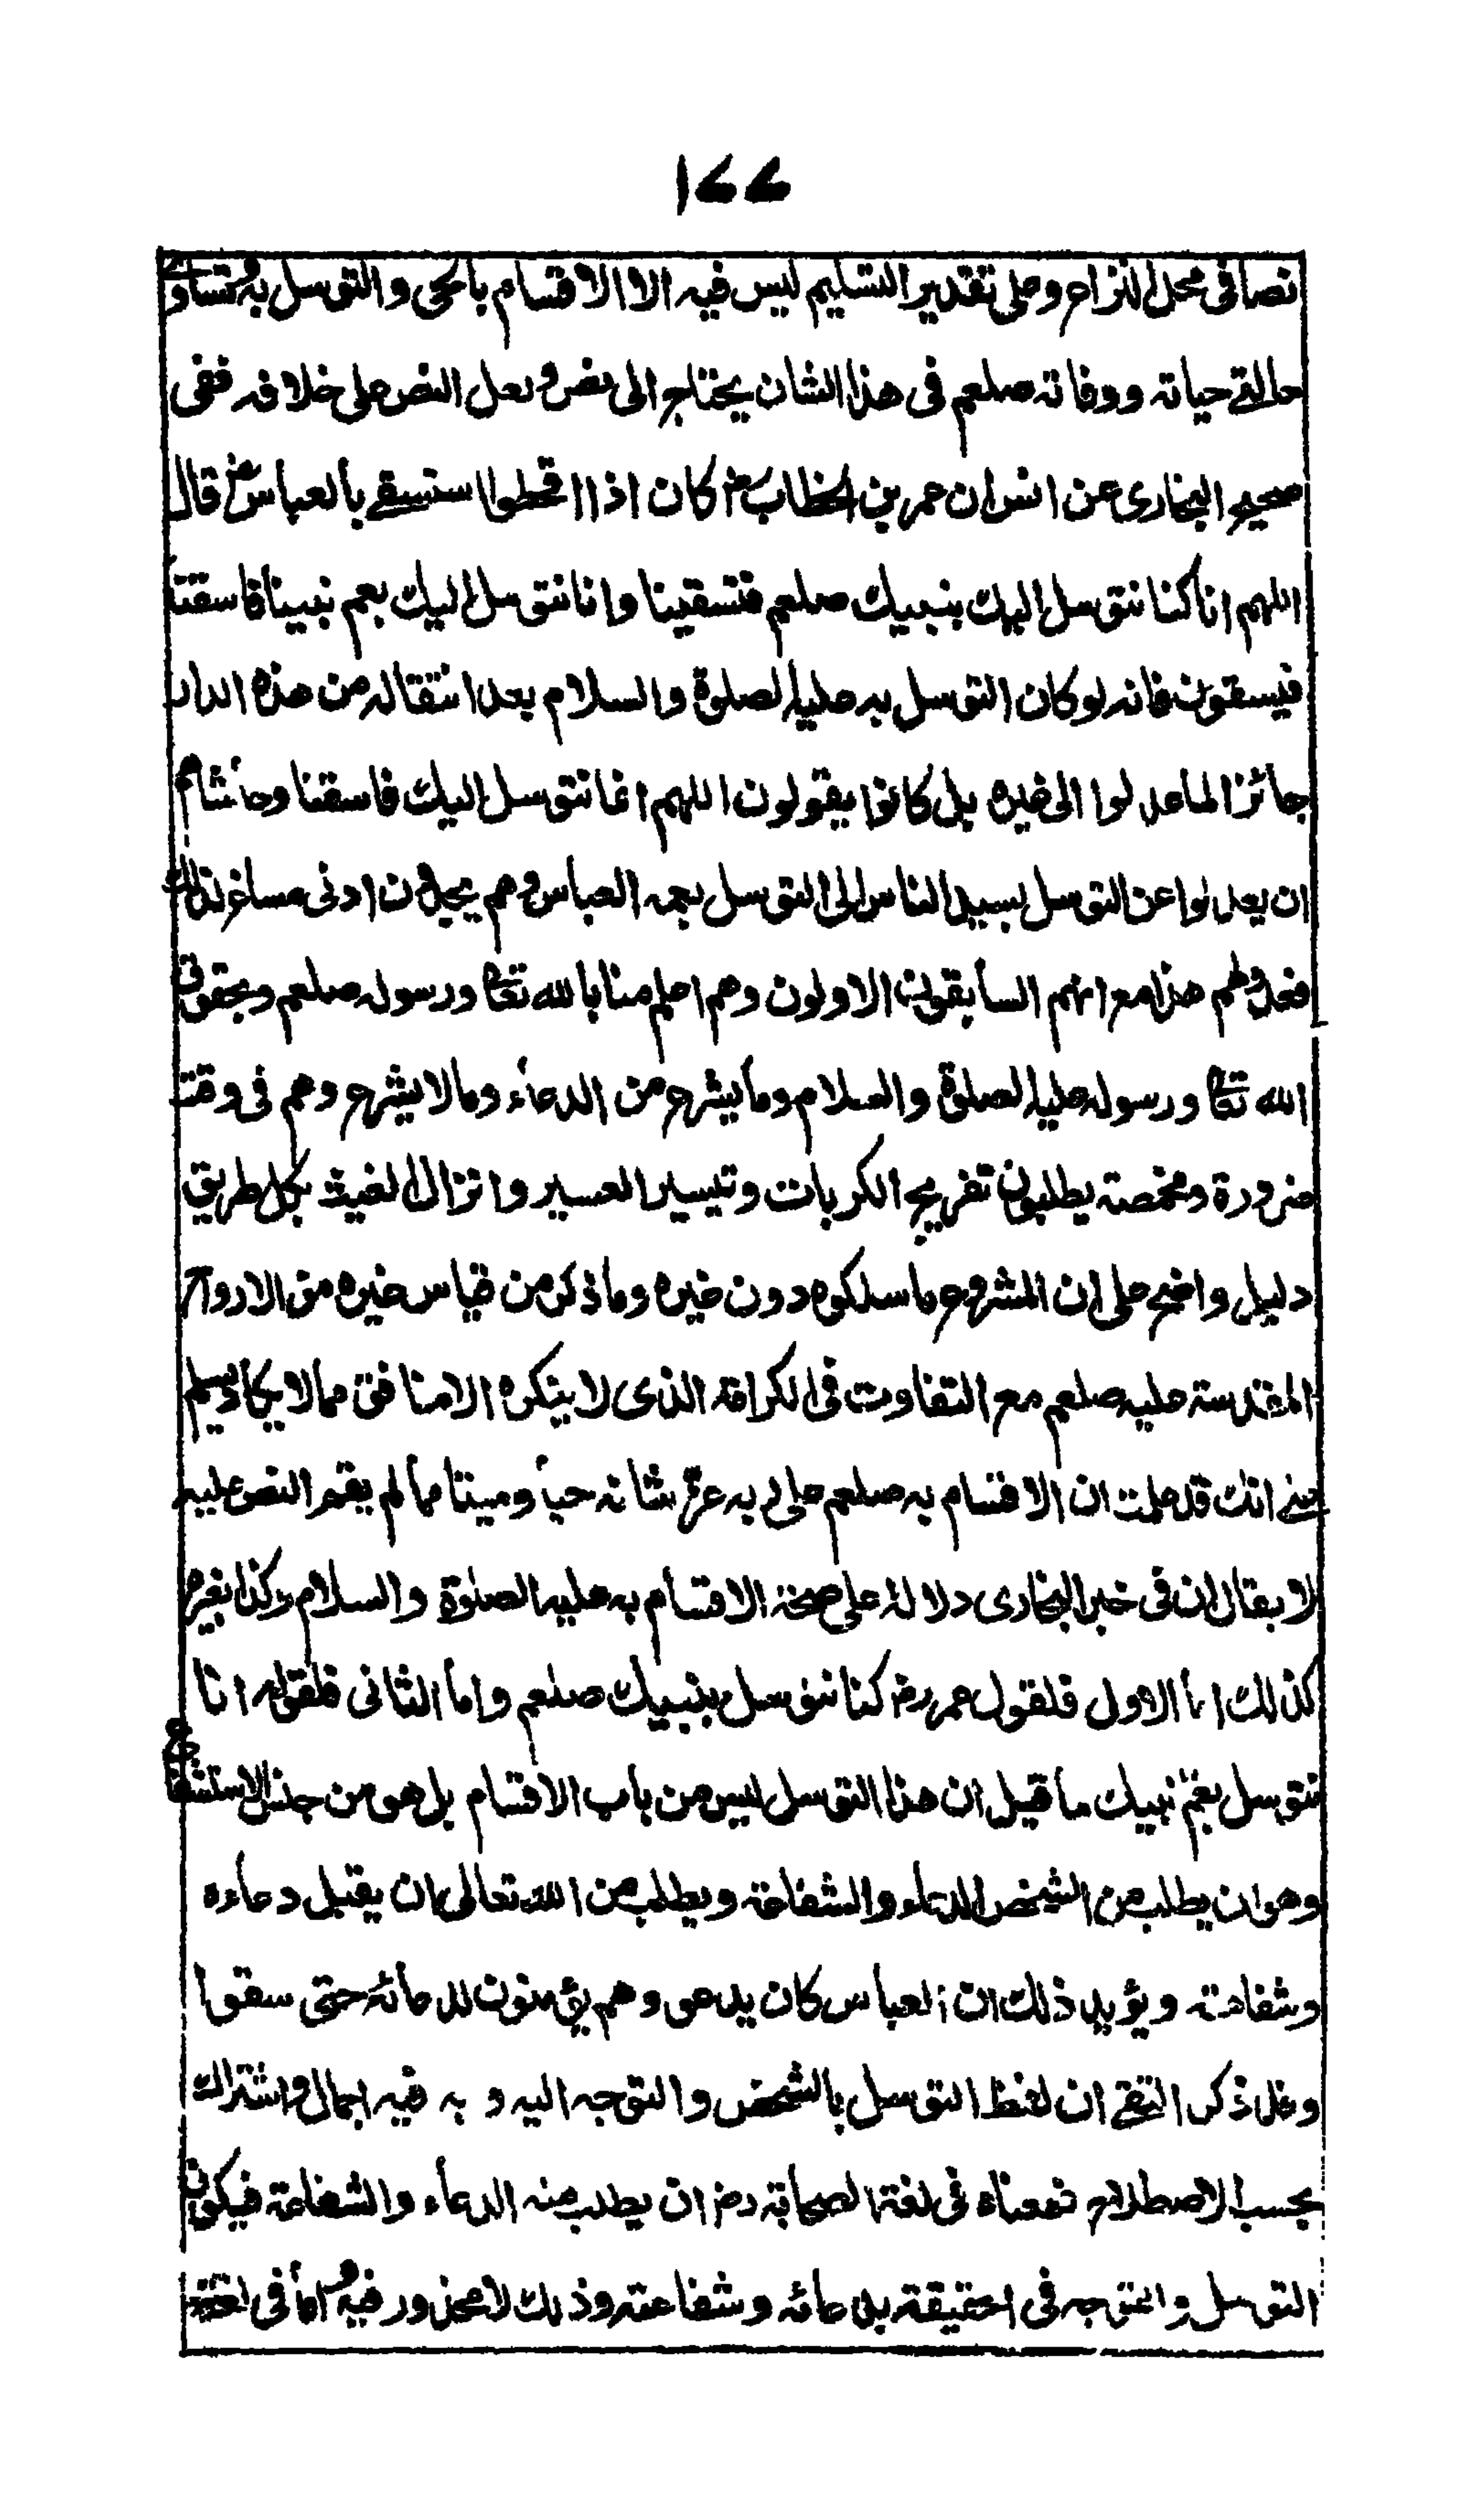 ١٧٧
نصا فى محل النزاع وعلى تقدير التسليم ليس فيه الا الاقسام بالحى والتوسل به وتساو
حالتى حياته ووفاته صلعم فى هذا الشان يحتاج الى نص ولعل النص على خلافه ففى
صحيح البخارى عن انس ان عمر بن الخطاب رض كان اذا اقحطوا استسقى بالعباس رض قال
اللهم انا كنا نتوسل اليك بنبيك صلعم فتسقينا وانا نتوسل اليك بعم نبينا فاسقنا
فيسقون فانه لو كان التوسل به عليه الصلوة والسلام بعد انتقاله من هذه الدار
جائزا لما عدلوا الى غيره بل كانوا يقولون اللهم انا نتوسل اليك فاسقنا وحاشاهم
ان يعدلوا عن التوسل بسيد الناس الى التوسل بعمه العباس وهم يجدون ادنى مساغ لذلك
فعدولهم هذا مع انهم السابقون الاولون وهم اعلم منا بالله تعا ورسوله صلعم وبحقوق
الله تعا ورسوله عليه الصلوة والسلام وما يشرع من الدعاء وما لا يشرع وهم فى وقت
ضرورة ومخمصة يطلبون تفريج الكربات وتيسير العسير وانزال الغيث بكل طريق
دليل واضح على ان المشروع ما سلكوه دون غيره وما ذكر من قياس غيره من الارواح
المقدسة عليه صلعم مع التفاوت فى الكرامة الذى لا ينكره الا منافق مما لا يكاد يسلم
على انك قد علمت ان الاقسام به صلعم على ربه عز شانه حيا وميتا مما لم يقم النص عليه
لا يقال ان فى خبر البخارى دلالة على صحة الاقسام به عليه الصلوة والسلام وكذا بغيره
كذلك اما الاول فلقول عمر رض كنا نتوسل بنبيك صلعم واما الثانى فلقوله انا
نتوسل بعم نبيك ما قيل ان هذا التوسل ليس من باب الاقسام بل هو من جنس الاستشفاع
وهو ان يطلب من الشخص الدعاء والشفاعة ويطلب من الله تعالى ان يقبل دعاءه
وشفاعته ويؤيد ذلك ان العباس كان يدعو وهم يؤمنون لدعائه حتى سقوا
وقد ذكر التقى ان لفظ التوسل بالشخص والتوجه اليه وبه فيه اجمال واشتراك
بحسب الاصطلاح فمعناه فى لغة الصحابة رض ان يطلب منه الدعاء والشفاعة فيكون
التوسل والتوجه فى الحقيقة بدعائه وشفاعته وذلك لا محذور فيه واما فى لغة